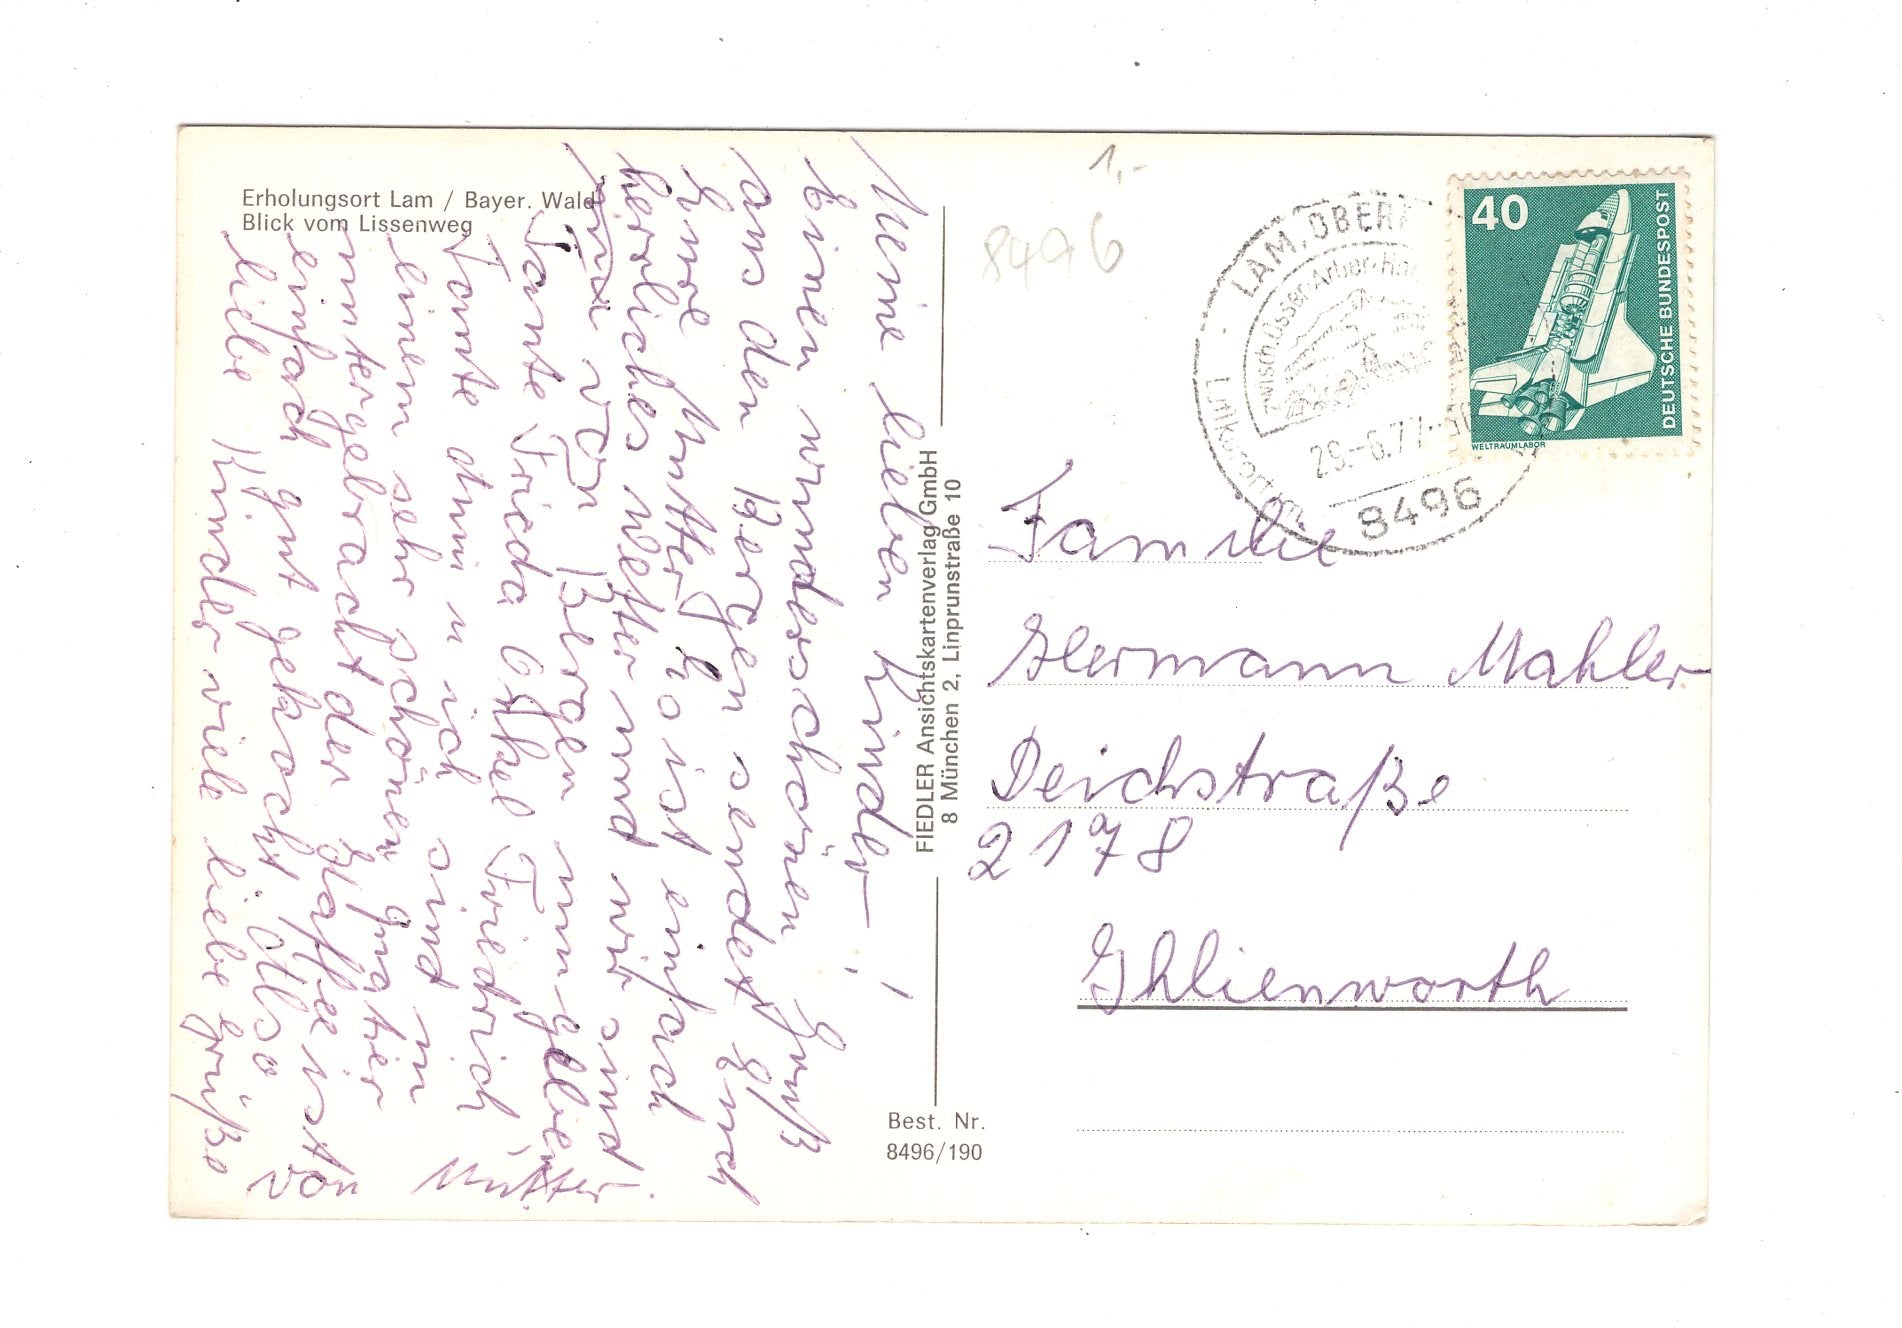 Erholungsort Lam / Bayer. Wald
Blick vom Lissenweg
Meine lieben Kinder !
Einen wunderschönen Gruß
aus den Bergen sendet Euch
Eure Mutter Es ist einfach
herrliches Wetter und wir sind
nur von Bergen umgeben
Tante Frieda Onkel Friedrich
Tante u ich sind in
einem sehr schönen Quatier
untergebracht der Kaffee ist
einfach gut gekocht Also
liebe Kinder viele liebe Grüße
von Mutter.
FIEDLER Ansichtskartenverlag GmbH
8 München 2, Linprunstraße 10
Best. Nr.
8496/190
1,-
8496
LAM, OBERP
zwisch. Osser-Arber-Ho
Luftkurort
29.-6.77
8496
40
DEUTSCHE BUNDESPOST
WELTRAUMLABOR
Familie
Hermann Mahler
Deichstraße
2178
Ihlienworth